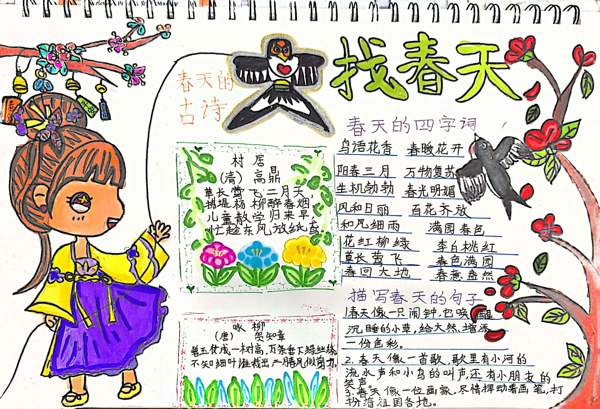 找春天
春天的
古诗
村居
(清) 高鼎
草长莺飞二月天
拂堤杨柳醉春烟
儿童散学归来早
忙趁东风放纸鸢
咏柳
(唐) 贺知章
碧玉妆成一树高,万条垂下绿丝绦
不知细叶谁裁出二月春风似剪刀
春天的四字词
鸟语花香 春暖花开
阳春三月 万物复苏
生机勃勃 春光明媚
风和日丽 百花齐放
和风细雨 满园春色
花红柳绿 李白桃红
草长莺飞 春色满园
春回大地 春意盎然
描写春天的句子
1.春天像一只闹钟,它唤醒
沉睡的小草,给大然增添
一份色彩。
2.春天像一首歌,歌里有小河的
流水声和小鸟的叫声还有小朋友的
笑声。
3.春天像一位画家,尽情挥动着画笔,打
扮着祖国各地。